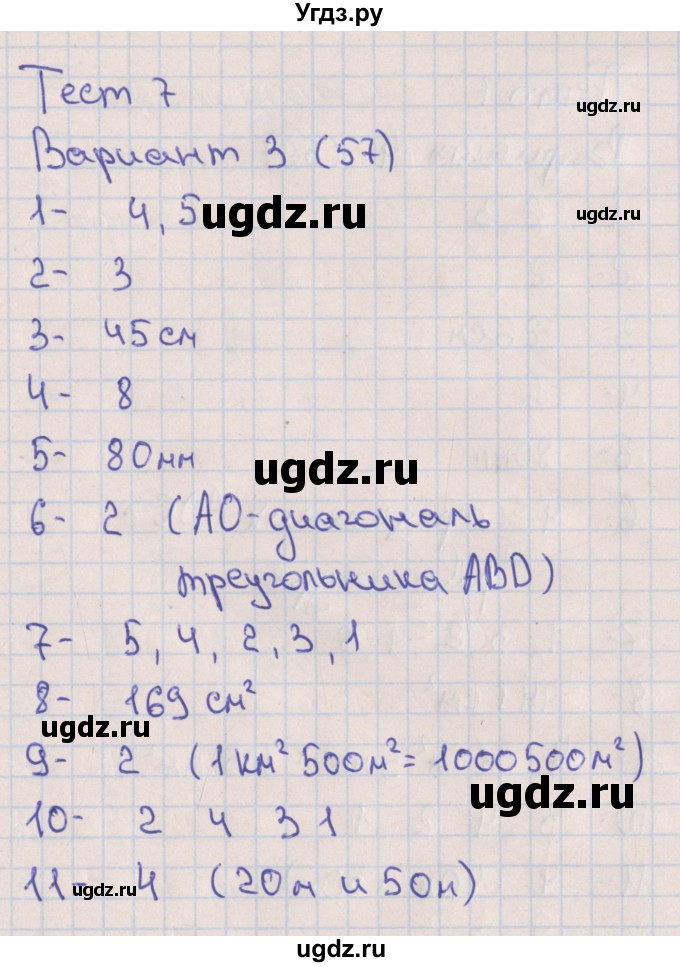 Угдз.ру
Тест 7
ugdz.ru
Вариант 3 (57)
1- 4, 5
ugdz.ru
ugdz.ru
2- 3
3- 45 см
ugdz.ru
4- 8
5- 80 мм
ugdz.ru
6- 2 (АО-диагональ
треугольника ABD)
7- 5, 4, 2, 3, 1
8- 169 см²
ugdz.ru
9- 2 (1 км² 500 м² = 1000500 м²)
ugdz.ru
10- 2 4 3 1
11- 4 (20 м и 50 м)
ugdz.ru
ugdz.ru